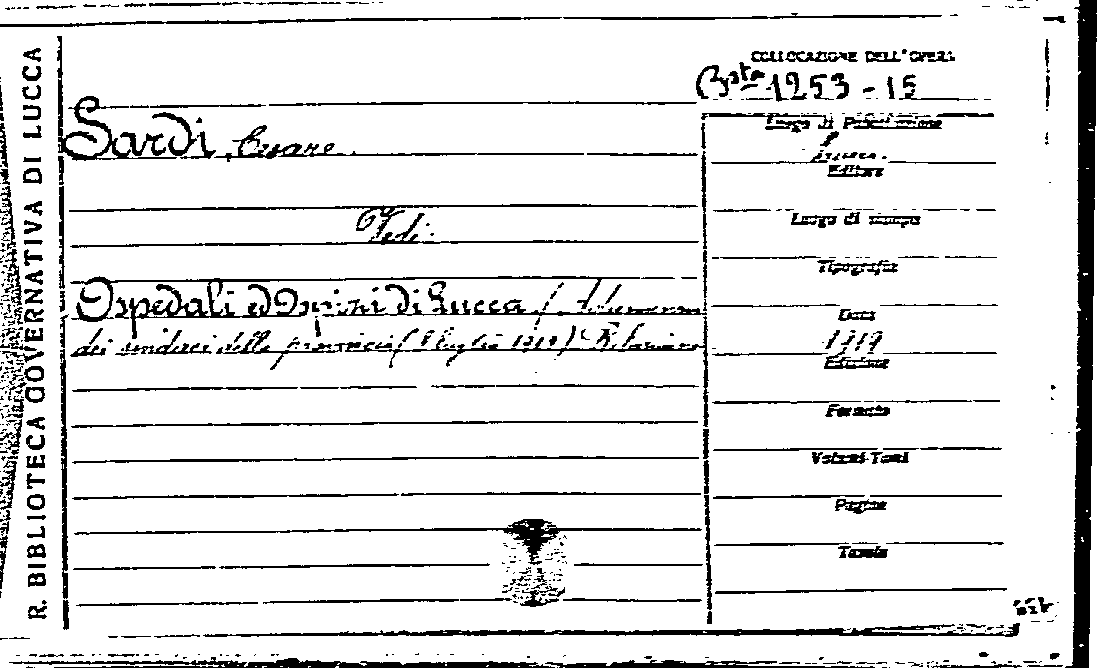 R. BIBLIOTECA GOVERNATIVA DI LUCCA
COLLOCAZIONE DELL'OPERA
Bsta 1253-15
Sardi, Cesare.
Vedi:
Ospedali ed Ospizi di Lucca /
dei sindaci della provincia (8 luglio 1919) Relazione
Luogo di Pubblicazione
Lucca.
Editore
Luogo di stampa
Tipografia
Data
1919
Edizione
Formato
Volumi-Tomi
Pagine
Tavole